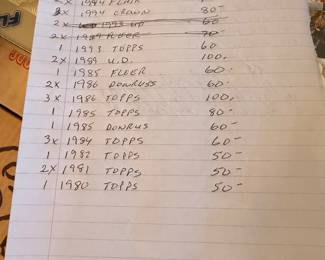 2x 1994 FLAIR
2x 1994 CROWN 80-
2x 1993 UD 60
2x 1989 FLEER 70-
1 1993 TOPPS 60
2x 1989 U.D. 100.
1 1985 FLEER 60-
2x 1986 DONRUSS 60-
3x 1986 TOPPS 100.
1 1985 TOPPS 80-
1 1985 DONRUS 60-
3x 1984 TOPPS 60-
1 1982 TOPPS 50-
2x 1981 TOPPS 50-
1 1980 TOPPS 50-